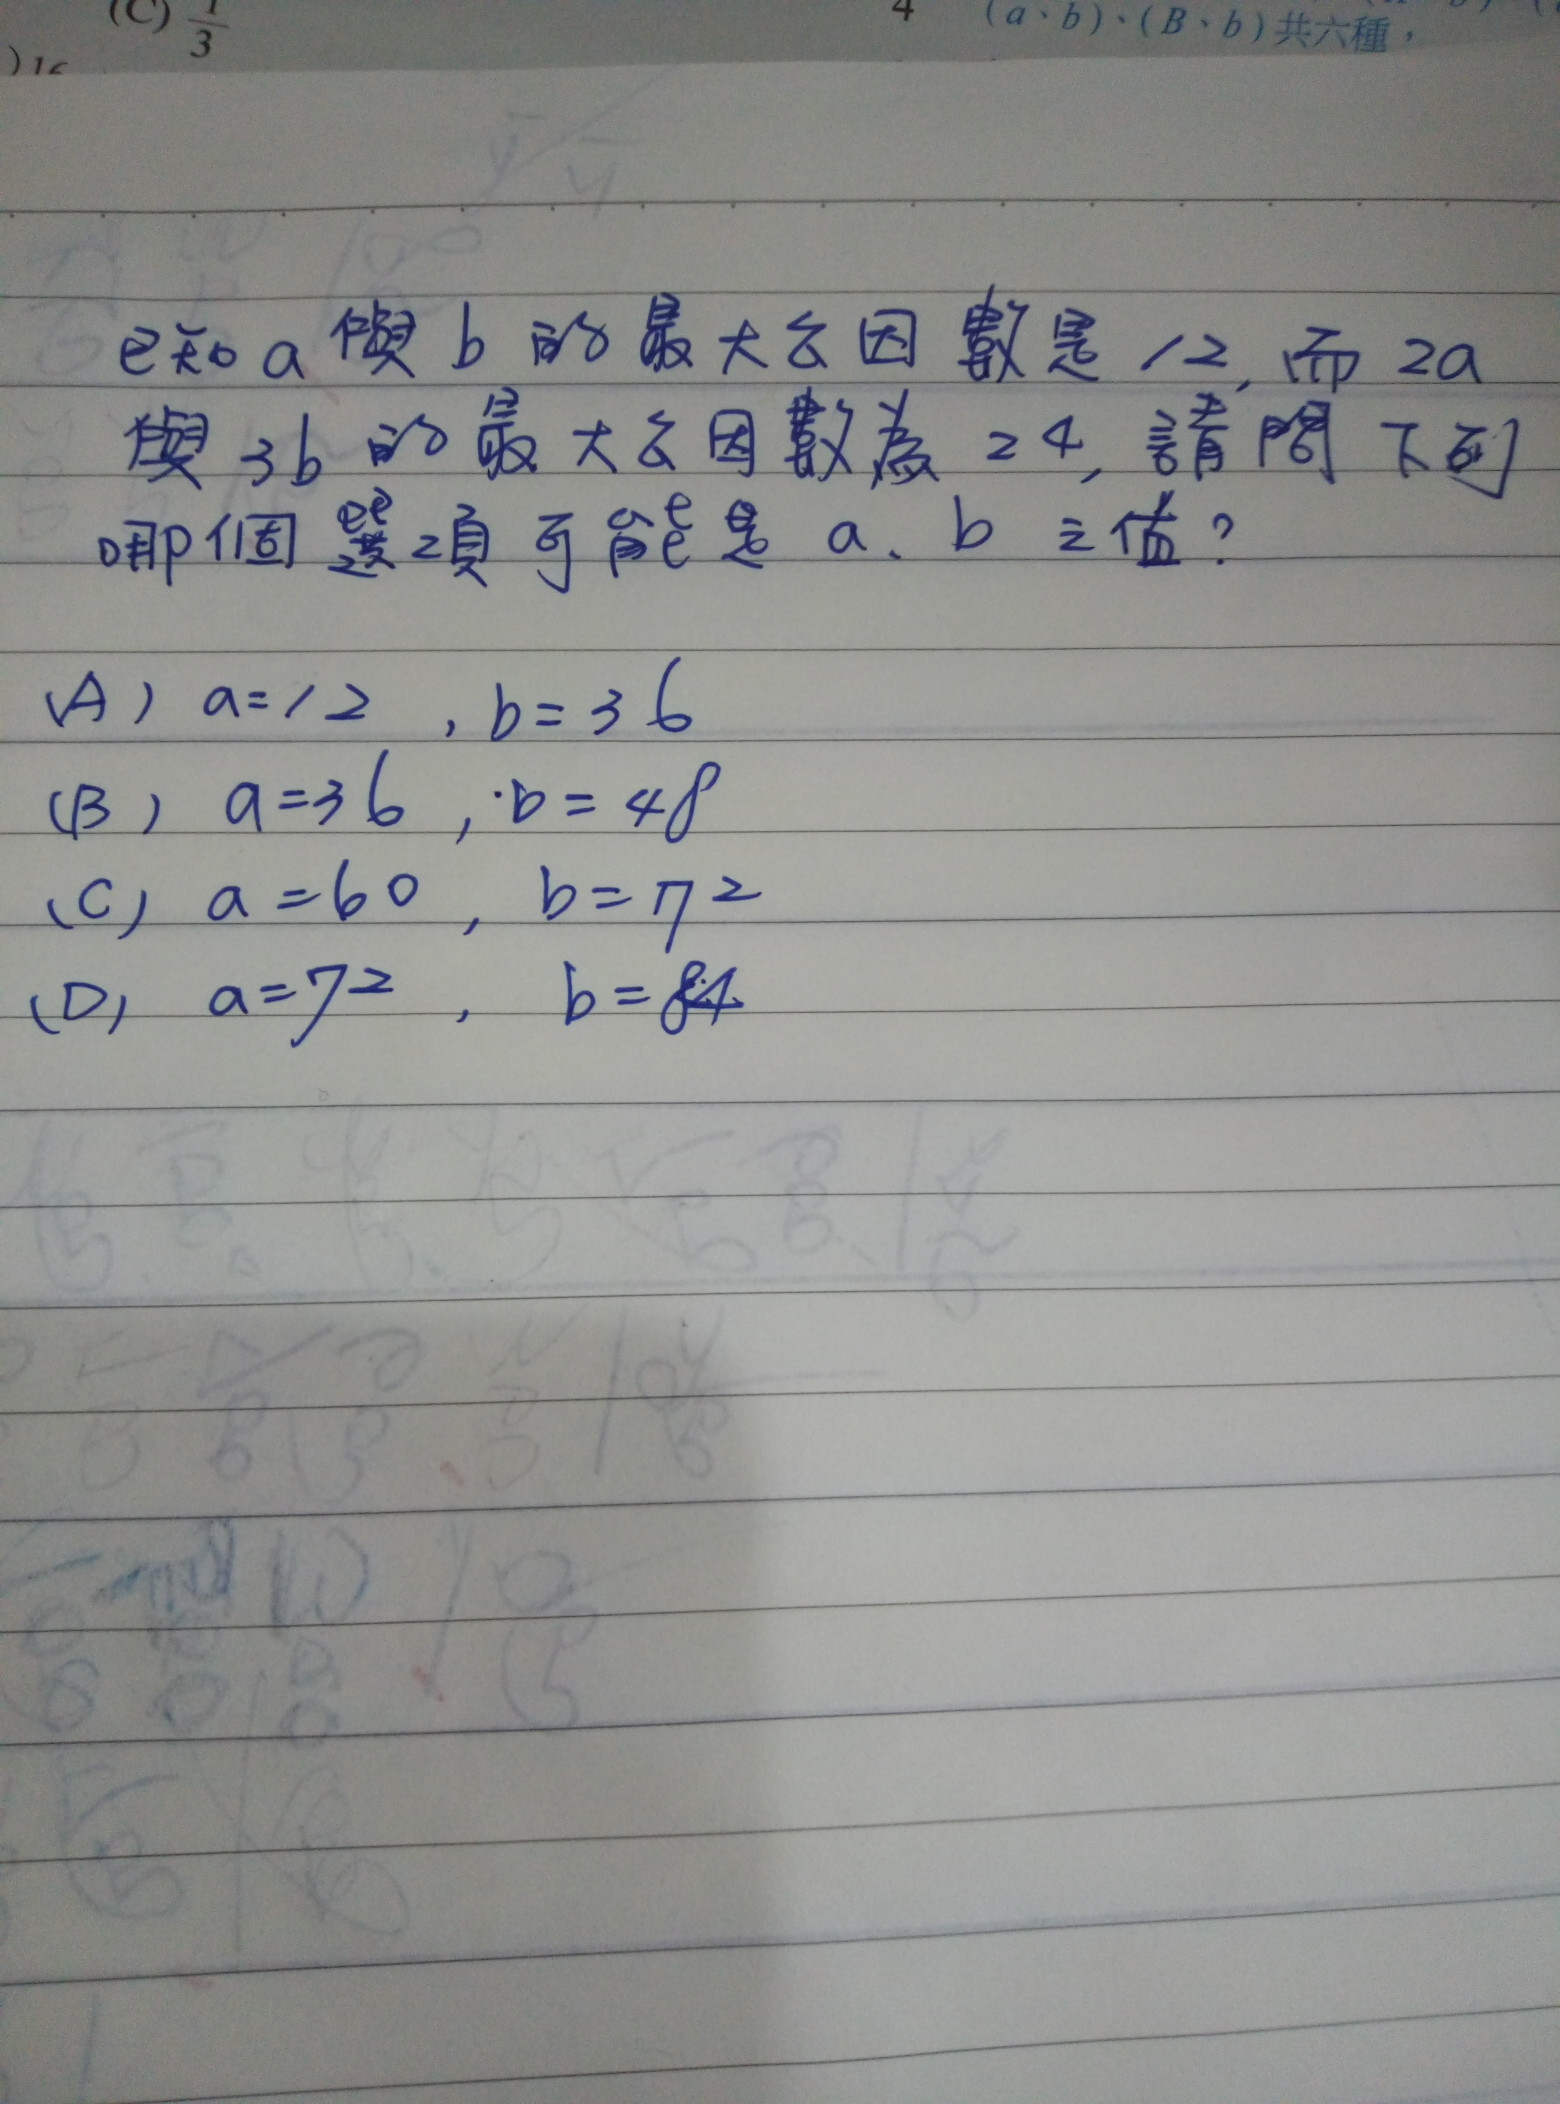 (C) 1/3
4
(a、b)、(B、b)共六種，
已知a與b的最大公因數是12,而2a
與3b的最大公因數為24,請問下列
哪個選項可能是a、b之值?
(A) a=12 , b=36
(B) a=36 , b=48
(C) a=60 , b=72
(D) a=72 , b=84